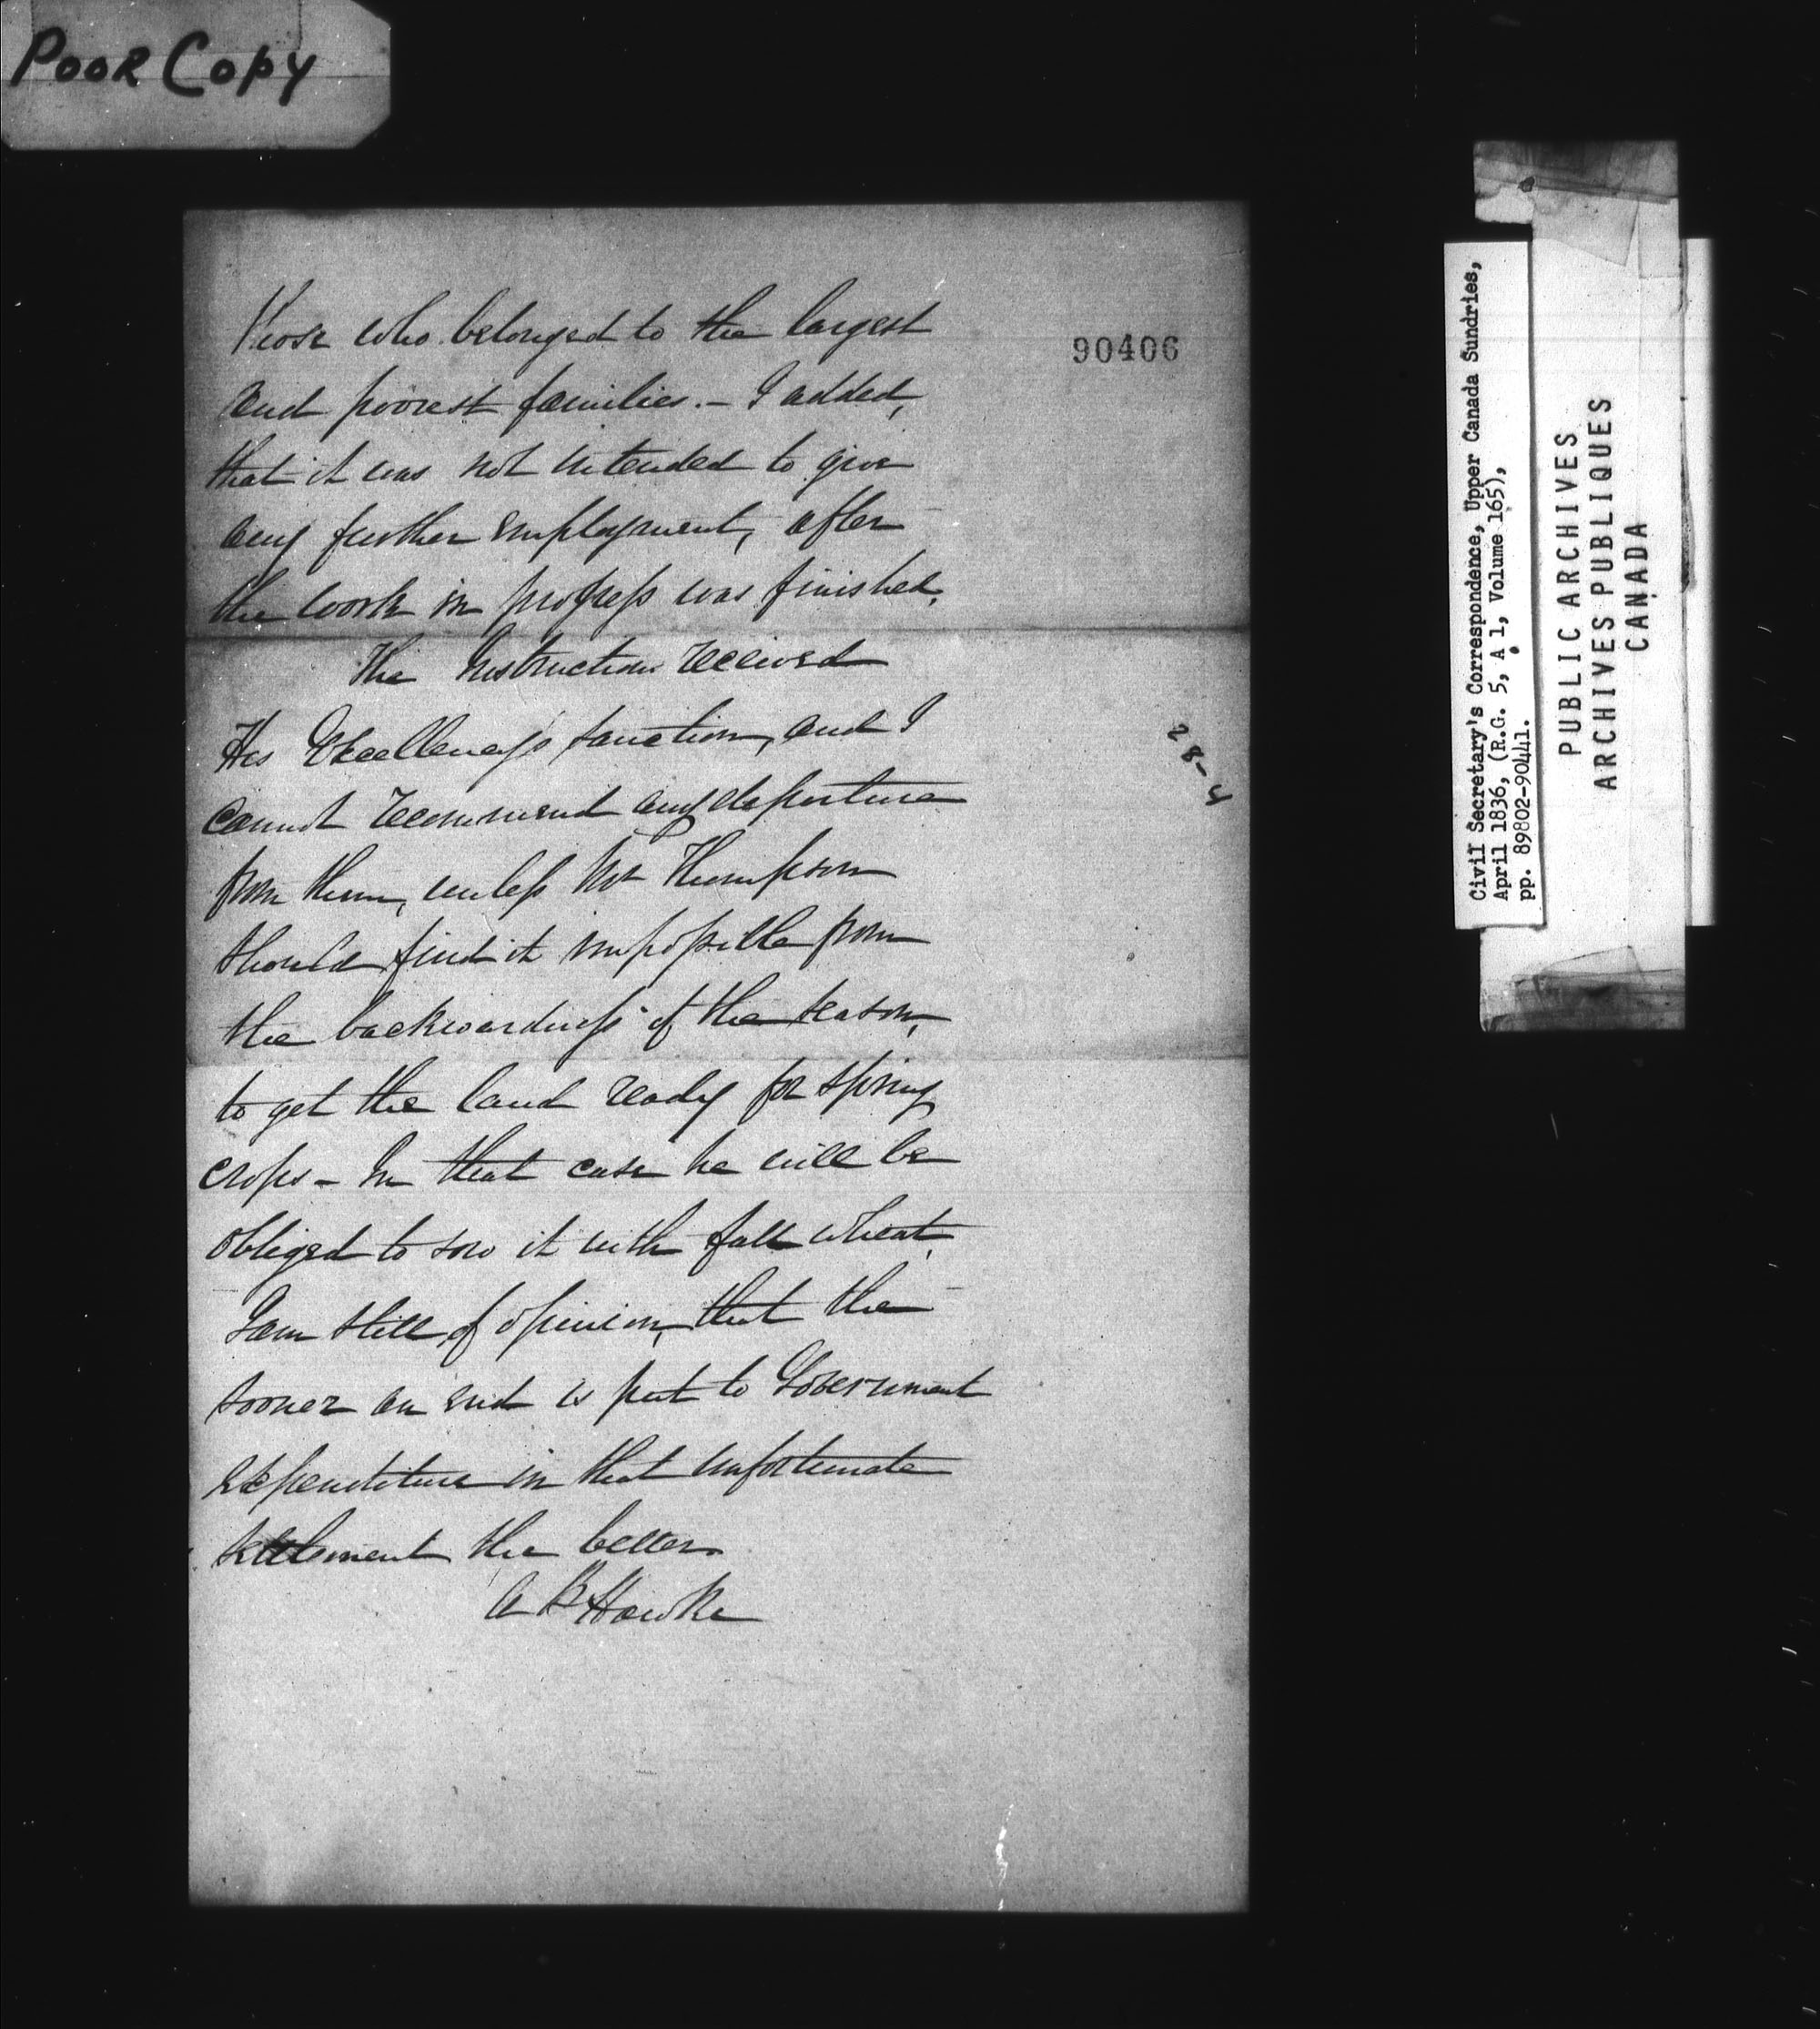 Poor Copy
90406
those who belonged to the largest
and poorest families. - I added,
that it was not intended to give
any further employment, after
the work in progress was finished.
The Instructions received
His Excellency's sanction, and I
cannot recommend any departure
from them, unless Mr Thompson
should find it impossible from
the backwardness of the season,
to get the land ready for spring
crops - In that case he will be
obliged to sow it with fall wheat.
I am still of opinion, that the
sooner an end is put to Government
expenditure in that unfortunate
settlement the better.
A B Hawke
28-4
Civil Secretary's Correspondence, Upper Canada Sundries,
April 1836, (R.G. 5, A 1, Volume 165),
pp. 89802-90441.
PUBLIC ARCHIVES
ARCHIVES PUBLIQUES
CANADA